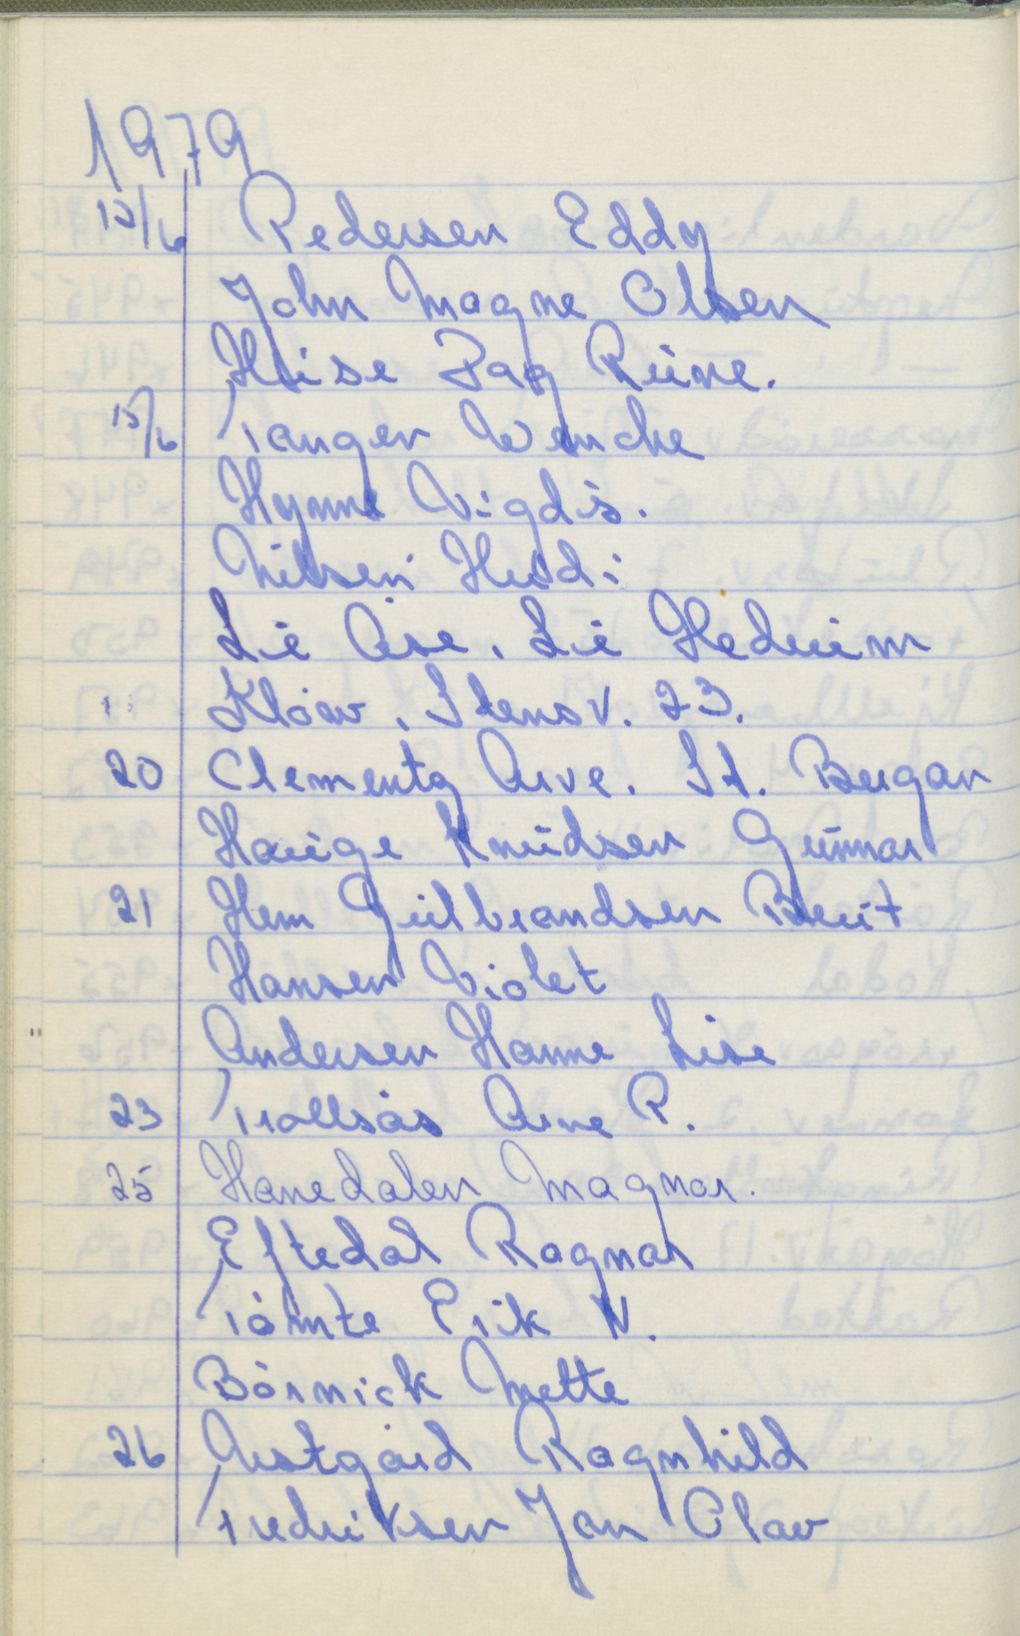 1979
12/6 Pedersen Eddy
John Magne Olsen
Heise Dag Rune.
15/6 Tanger Wenche
Hynne Vigdis.
Nilsen Heidi
Lie Åse. Lie Hedheim
" Klöav. Stensv. 23.
20 Clementz Arve. St. Bergan
Hauge Knudsen Gunnar
21 Hem Gulbrandsen Berit
Hansen Violet
" Andersen Hanne Lise
23 Trollsås Arne R.
25 Hanedalen Magnar.
Eftedal Ragnar
Tømte Erik N.
Börnick Mette
26 Austgård Ragnhild
Fredriksen Jan Olav